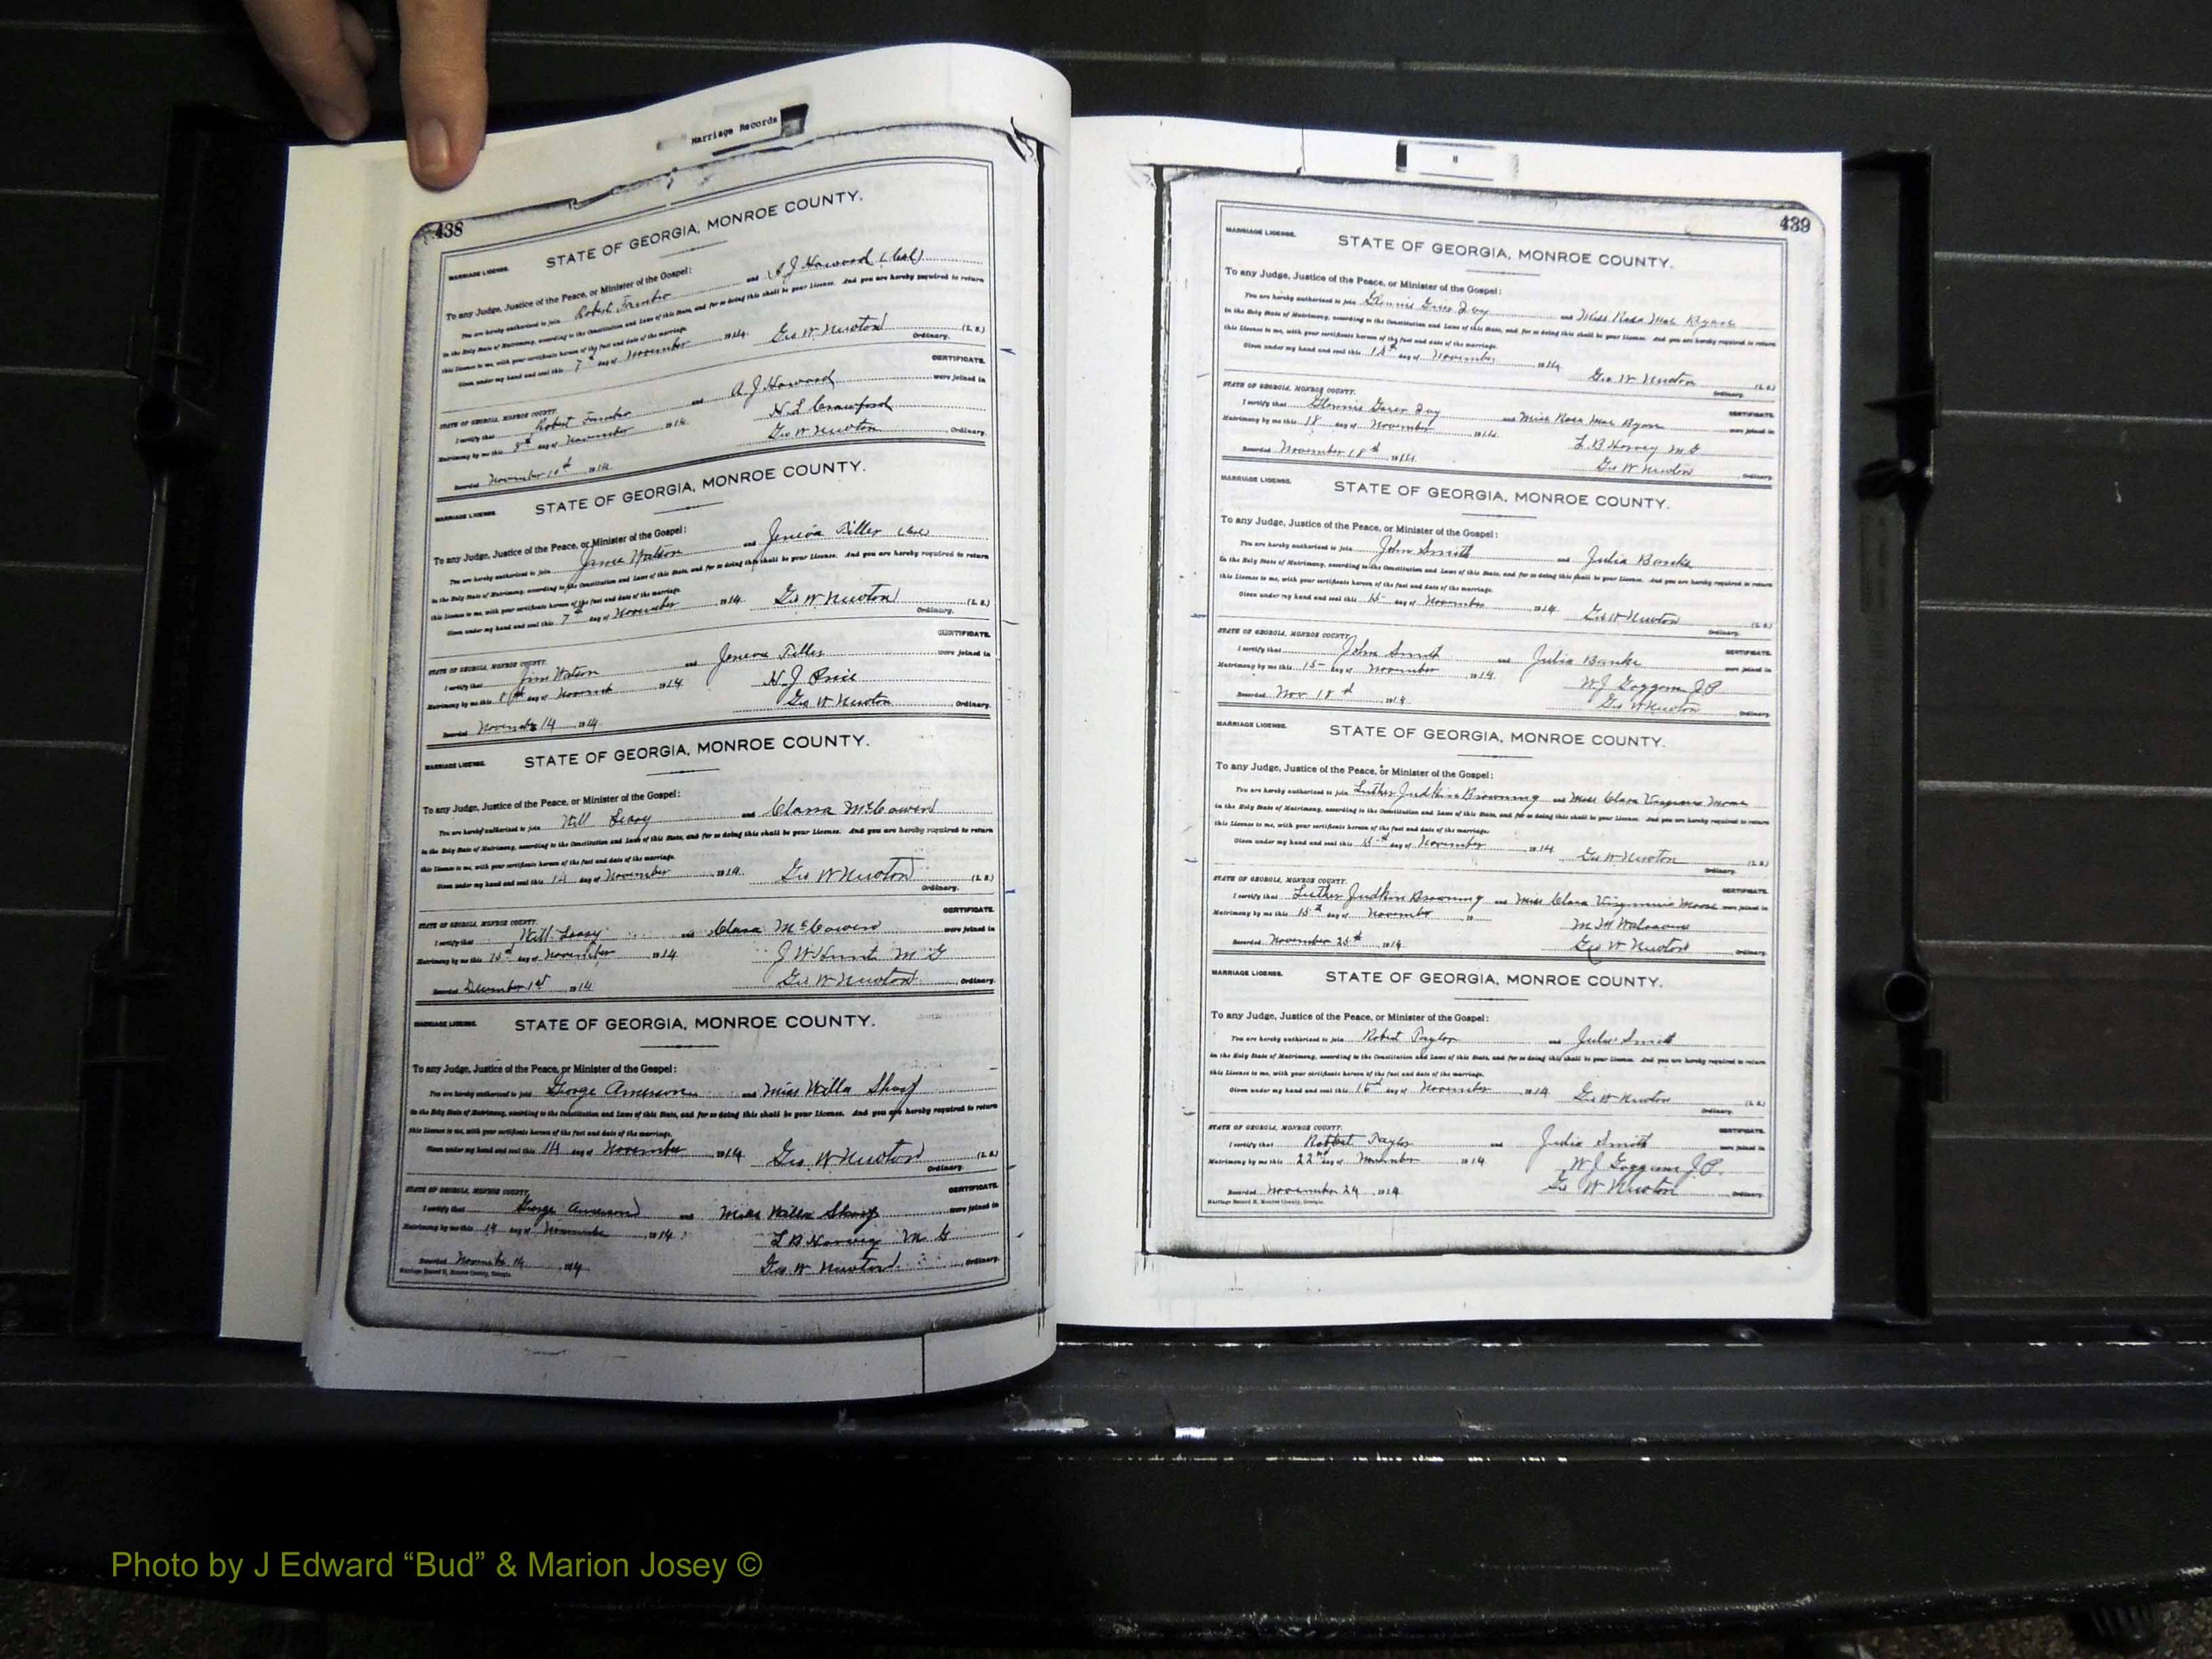 Marriage Records
438
MARRIAGE LICENSE. STATE OF GEORGIA, MONROE COUNTY.
To any Judge, Justice of the Peace, or Minister of the Gospel:
You are hereby authorized to join Robert and A J Howard (Col)
in the Holy State of Matrimony, according to the Constitution and Laws of this State, and for so doing this shall be your License. And you are hereby required to return
this License to me, with your certificate hereon of the fact and date of the marriage.
Given under my hand and seal this 7th day of November 1914. Geo W Newton (L. S.)
Ordinary.
STATE OF GEORGIA, MONROE COUNTY. CERTIFICATE.
I certify that Robert and A J Howard were joined in
Matrimony by me this 8th day of November 1914. H L Crawford
Recorded November 10th 1914. Geo W Newton Ordinary.
MARRIAGE LICENSE. STATE OF GEORGIA, MONROE COUNTY.
To any Judge, Justice of the Peace, or Minister of the Gospel:
You are hereby authorized to join Watson and Tiller (Col)
in the Holy State of Matrimony, according to the Constitution and Laws of this State, and for so doing this shall be your License. And you are hereby required to return
this License to me, with your certificate hereon of the fact and date of the marriage.
Given under my hand and seal this 7th day of November 1914. Geo W Newton (L. S.)
Ordinary.
STATE OF GEORGIA, MONROE COUNTY. CERTIFICATE.
I certify that Jim Watson and Tiller were joined in
Matrimony by me this 8th day of 1914 H J Price
Recorded November 14 1914 Geo W Newton Ordinary.
MARRIAGE LICENSE. STATE OF GEORGIA, MONROE COUNTY.
To any Judge, Justice of the Peace, or Minister of the Gospel:
You are hereby authorized to join Will and Clara McCowen
in the Holy State of Matrimony, according to the Constitution and Laws of this State, and for so doing this shall be your License. And you are hereby required to return
this License to me, with your certificate hereon of the fact and date of the marriage.
Given under my hand and seal this 14 day of November 1914. Geo W Newton (L. S.)
Ordinary.
STATE OF GEORGIA, MONROE COUNTY. CERTIFICATE.
I certify that Will and Clara McCowen were joined in
Matrimony by me this 15th day of November 1914 J W Hunt M G
Recorded December 1st 1914 Geo W Newton Ordinary.
MARRIAGE LICENSE. STATE OF GEORGIA, MONROE COUNTY.
To any Judge, Justice of the Peace, or Minister of the Gospel:
You are hereby authorized to join George Amerson and Miss Willa
in the Holy State of Matrimony, according to the Constitution and Laws of this State, and for so doing this shall be your License. And you are hereby required to return
this License to me, with your certificate hereon of the fact and date of the marriage.
Given under my hand and seal this 14 day of November 1914 Geo W Newton (L. S.)
Ordinary.
STATE OF GEORGIA, MONROE COUNTY. CERTIFICATE.
I certify that George Amerson and Miss Willa were joined in
Matrimony by me this 14 day of November 1914 L B Harvey M G
Recorded 14 1914 Geo W Newton Ordinary.
Marriage Record H, Monroe County, Georgia.
439
MARRIAGE LICENSE. STATE OF GEORGIA, MONROE COUNTY.
To any Judge, Justice of the Peace, or Minister of the Gospel:
You are hereby authorized to join and Miss Rosa Mae
in the Holy State of Matrimony, according to the Constitution and Laws of this State, and for so doing this shall be your License. And you are hereby required to return
this License to me, with your certificate hereon of the fact and date of the marriage.
Given under my hand and seal this day of November 1914. Geo W Newton (L. S.)
Ordinary.
STATE OF GEORGIA, MONROE COUNTY. CERTIFICATE.
I certify that and Miss Rosa Mae were joined in
Matrimony by me this 18 day of November 1914. L B Harvey M G
Recorded November 18th 1914. Geo W Newton Ordinary.
MARRIAGE LICENSE. STATE OF GEORGIA, MONROE COUNTY.
To any Judge, Justice of the Peace, or Minister of the Gospel:
You are hereby authorized to join John Smith and Julia Banks
in the Holy State of Matrimony, according to the Constitution and Laws of this State, and for so doing this shall be your License. And you are hereby required to return
this License to me, with your certificate hereon of the fact and date of the marriage.
Given under my hand and seal this 15 day of November 1914 Geo W Newton (L. S.)
Ordinary.
STATE OF GEORGIA, MONROE COUNTY. CERTIFICATE.
I certify that John Smith and Julia Banks were joined in
Matrimony by me this 15 day of November 1914. W J Goggans J P
Recorded Nov 18th 1914 Geo W Newton Ordinary.
MARRIAGE LICENSE. STATE OF GEORGIA, MONROE COUNTY.
To any Judge, Justice of the Peace, or Minister of the Gospel:
You are hereby authorized to join Luther Judkins Browning and Miss Clara Virginia Moore
in the Holy State of Matrimony, according to the Constitution and Laws of this State, and for so doing this shall be your License. And you are hereby required to return
this License to me, with your certificate hereon of the fact and date of the marriage.
Given under my hand and seal this 15th day of November 1914 Geo W Newton (L. S.)
Ordinary.
STATE OF GEORGIA, MONROE COUNTY. CERTIFICATE.
I certify that Luther Judkins Browning and Miss Clara Virginia Moore were joined in
Matrimony by me this 15th day of November 19 M H
Recorded November 25th 1914 Geo W Newton Ordinary.
MARRIAGE LICENSE. STATE OF GEORGIA, MONROE COUNTY.
To any Judge, Justice of the Peace, or Minister of the Gospel:
You are hereby authorized to join Robert Taylor and Julia Smith
in the Holy State of Matrimony, according to the Constitution and Laws of this State, and for so doing this shall be your License. And you are hereby required to return
this License to me, with your certificate hereon of the fact and date of the marriage.
Given under my hand and seal this 16th day of November 1914 Geo W Newton (L. S.)
Ordinary.
STATE OF GEORGIA, MONROE COUNTY. CERTIFICATE.
I certify that Robert Taylor and Julia Smith were joined in
Matrimony by me this 22nd day of November 1914 W J Goggans J P.
Recorded November 24 1914 Geo W Newton Ordinary.
Marriage Record H, Monroe County, Georgia.
Photo by J Edward “Bud” & Marion Josey ©